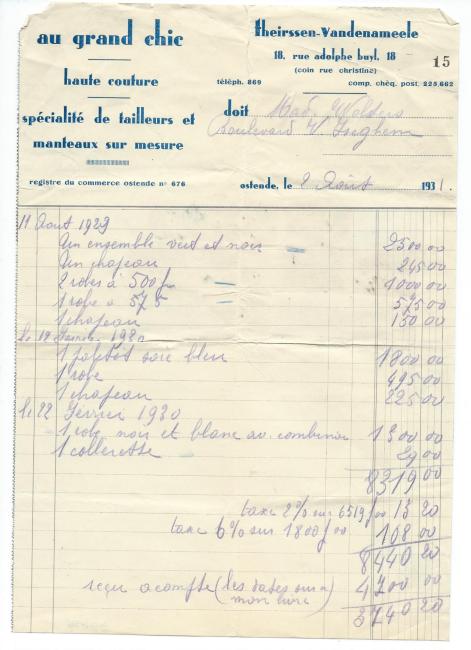 au grand chic
haute couture
spécialité de tailleurs et
manteaux sur mesure
registre du commerce ostende n° 676
theirssen-Vandenameele
18, rue adolphe buyl, 18
(coin rue christine)
15
téléph. 869
comp. chèq. post. 225,662
doit Mad. Wolders
Boulevard V Iseghem
ostende, le 8 Août 1931.
11 Août 1929
Un ensemble vert et noir 2500 00
Un chapeau 245 00
2 robes à 500 f 1000 00
1 robe à 575 575 00
1 chapeau 150 00
le 19
1 bleu 1800 00
1 robe 495 00
1 chapeau 225 00
le 22 Février 1930
1 robe noir et blanc av. 1300 00
1 collerette 29 00
8319 00
taxe 2%0 sur 6519 f 00 13 20
taxe 6%0 sur 1800 f 00 108 00
8440 20
reçu acompte (les dates sur
mon livre) 4700 00
3740 20